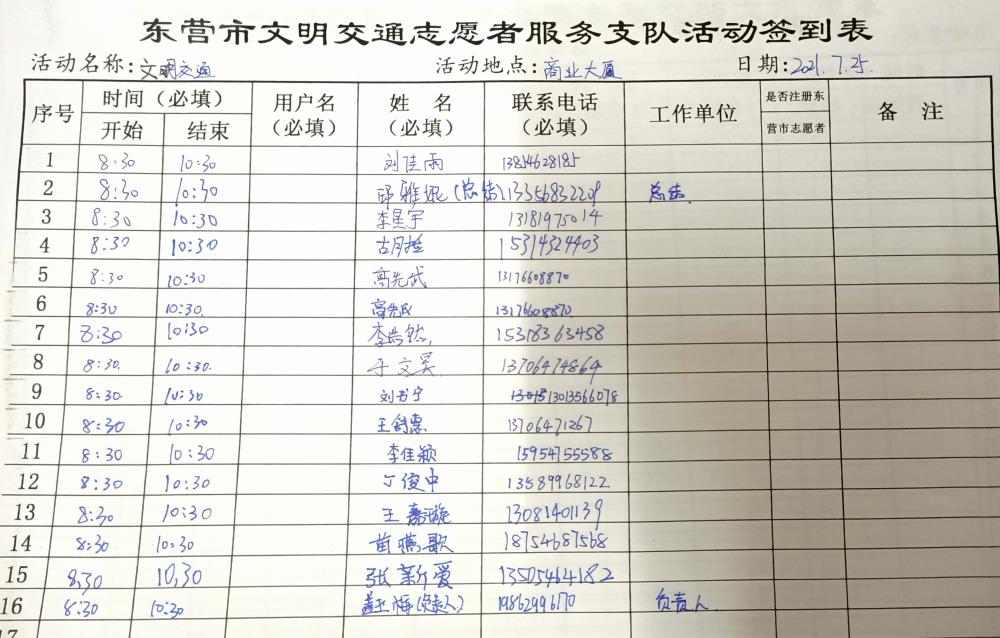 东营市文明交通志愿者服务支队活动签到表
活动名称:文明交通 活动地点:商业大厦 日期:2021.7.25.
序号 时间（必填） 用户名（必填） 姓名（必填） 联系电话（必填） 工作单位 是否注册东营市志愿者 备注
开始 结束
1 8:30 10:30 刘佳雨 13854628185
2 8:30 10:30 邱雅琨(总结) 13356832209 总结
3 8:30 10:30 李星宇 13181975014
4 8:30 10:30 15314324403
5 8:30 10:30 高先武 13176608870
6 8:30 10:30. 高先民 13176608870
7 8:30 10:30 李浩然, 15318363458
8 8:30. 10:30. 于文昊 13706474864
9 8:30. 10:30 刘书宁 13013566078
10 8:30 10:30 王舒惠 13706471267
11 8:30 10:30 李佳颖 15954755588
12 8:30 10:30 丁俊中 13589968122
13 8:30 10:30 王嘉漩 13081401139
14 8:30 10:30 苗燕歌 18754687568
15 8,30 10,30 张新爱 13505464182
16 8:30 10:30 盖玉梅(负责人) 负责人
17